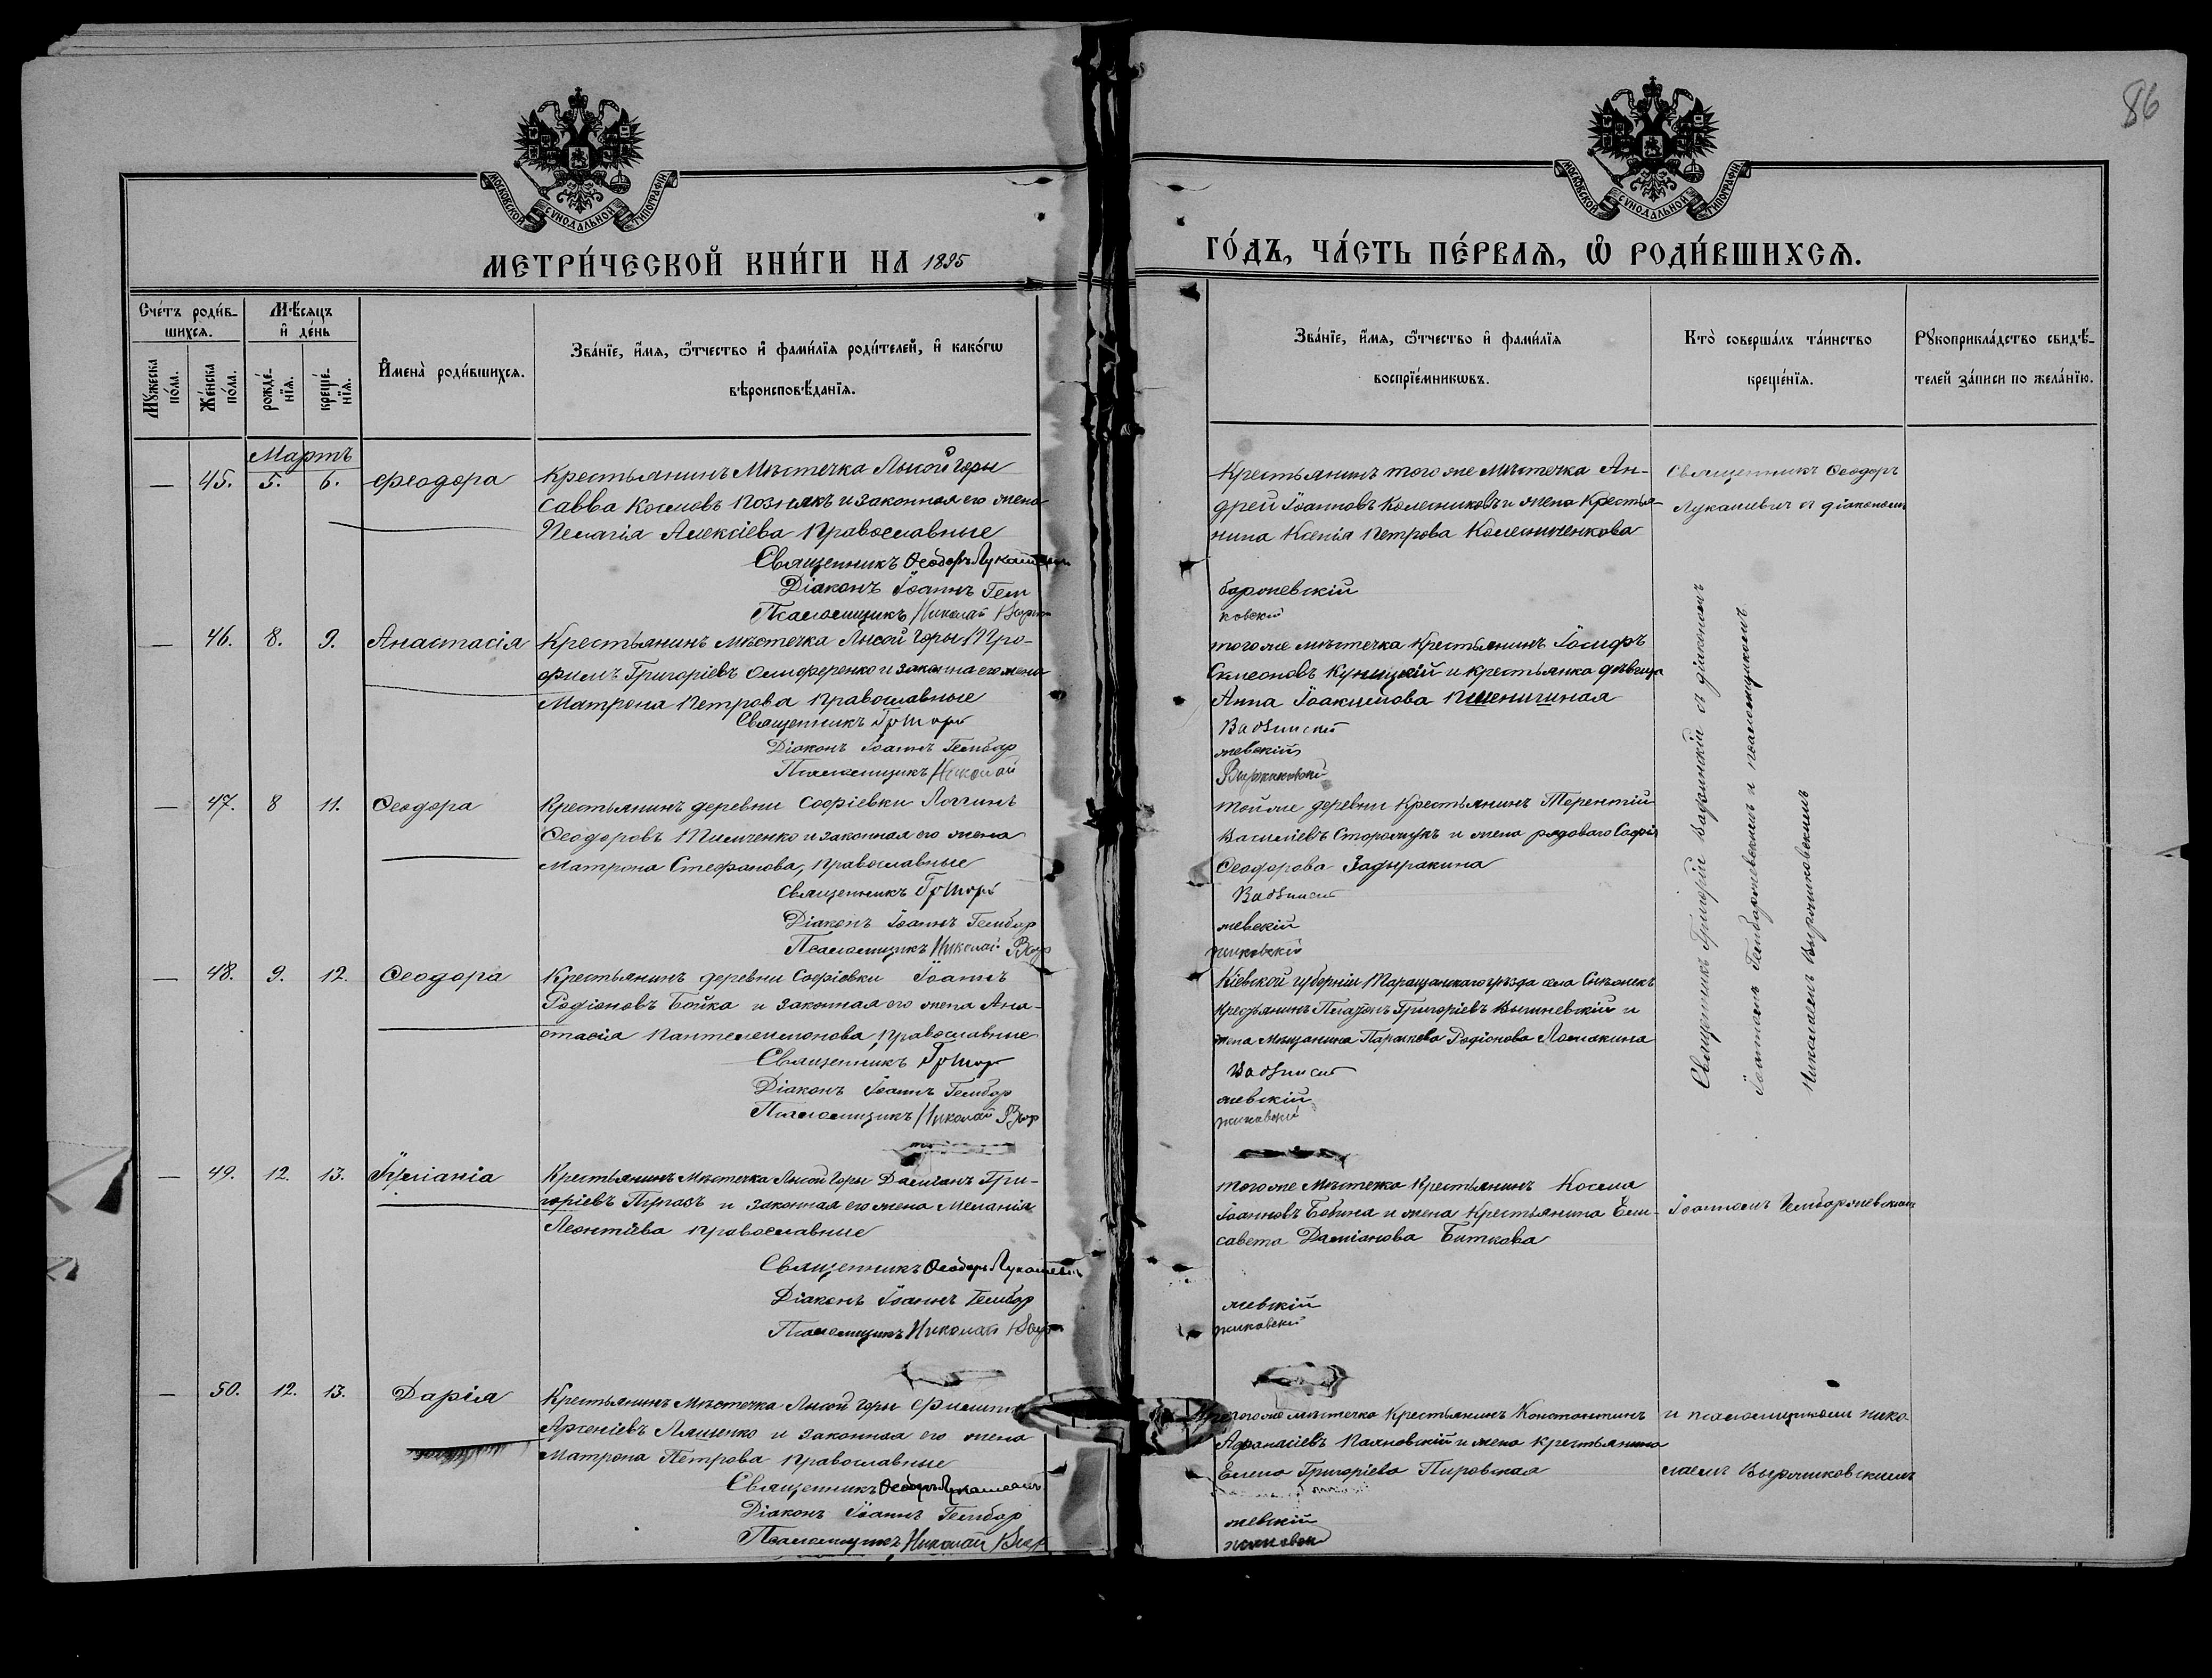 86
МОСКОВСКОЙ СѴНОДАЛЬНОЙ ТИПОГРАФІИ
МОСКОВСКОЙ СѴНОДАЛЬНОЙ ТИПОГРАФІИ
МЕТРИ́ЧЕСКОЙ КНИ́ГИ НА 1895
ГО́ДЪ, ЧА́СТЬ ПЕ́РВАѦ, Ѡ҆ РОДИ́ВШИХСѦ.
Сче́тъ роди́в-
шихсѧ.
Мꙋ́жеска по́ла.
Же́нска по́ла.
Мѣ́сѧцъ
и҆ де́нь
рожде́-
нїѧ.
креще́-
нїѧ.
И҆мена̀ роди́вшихсѧ.
Зва́нїе, и҆́мѧ, ѻ҆́тчество и҆ фами́лїѧ роди́телей, и҆ како́гѡ
вѣроисповѣ́данїѧ.
Зва́нїе, и҆́мѧ, ѻ҆́тчество и҆ фами́лїѧ
воспрїе́мникѡвъ.
Кто̀ соверша́лъ та́инство
креще́нїѧ.
Рꙋкоприкла́дство свидѣ́-
телей за́писи по жела́нїю.
Мартъ
— 45. 5. 6. Феодора
Крестьянинъ Мѣстечка Лысой Горы
Савва Космовъ Познякъ и законная его жена
Пелагія Алексіева Православные
Священникъ Ѳеодоръ Лукашевич
Діаконъ Іоаннъ Гем
Псаломщикъ Николай Выржи
Крестьянинъ того же мѣстечка Ан-
дрей Іоанновъ Колесниковъ и жена Крестья-
нина Ксенія Петрова Колесниченкова
баржевскій
ковскій
Священникъ Ѳеодоръ
Лукашевич съ діакономъ
— 46. 8. 9. Анастасія
Крестьянинъ мѣстечка Лысой Горы Про-
фимъ Григоріевъ Олиференко и законная его жена
Матрона Петрова Православные
Священникъ Григорій
Діаконъ Іоаннъ Гембар
Псаломщикъ Николай
того же мѣстечка Крестьянинъ Іосифъ
Симеоновъ Куницкій и крестьянка дѣвица
Анна Іоакимова Пшеничная
Вадзинскій
жевскій
Выржиковскій
— 47. 8 11. Ѳеодора
Крестьянинъ деревни Софіевки Логгинъ
Ѳеодоровъ Пилипченко и законная его жена
Матрона Стефанова, Православные
Священникъ Григорій
Діаконъ Іоаннъ Гембар
Псаломщикъ Николай Выр
той же деревни Крестьянинъ Терентій
Василіевъ Сторожукъ и жена рядоваго Софія
Ѳеодорова Задыракина
Вадзинскій
жевскій
жиковскій
— 48. 9. 12. Ѳеодора
Крестьянинъ деревни Софіевки Іоаннъ
Родіоновъ Бойка и законная его жена Ана-
стасія Пантелеимонова, Православные
Священникъ Григор
Діаконъ Іоаннъ Гембар
Псаломщикъ Николай Выр
Кіевской губерніи Таращанскаго уѣзда села
Крестьянинъ Платонъ Григоріевъ Вишневскій и
жена мѣщанина Параскева Родіонова Ломакина
Вадзинскій
жевскій
жиковскій
Священникъ Григорій Вадзинскій съ діакономъ
Іоанномъ Гембаржевскимъ и псаломщикомъ
Николаемъ Выржиковскимъ
— 49. 12. 13.
Крестьянинъ Мѣстечка Лысой Горы Даміанъ Гри-
горіевъ и законная его жена Меланія
Леонтіева православные
Священникъ Ѳеодоръ Лукашевич
Діаконъ Іоаннъ Гембар
Псаломщикъ Николай Выр
того же мѣстечка Крестьянинъ Косма
Іоанновъ Бовина и жена Крестьянина Ели-
савета Даміанова Биткова
жевскій
жиковскій
Іоанномъ Гембаржевскимъ
— 50. 12. 13. Дарія
Крестьянинъ Мѣстечка Лысой Горы
Арсеніевъ Лященко и законная его жена
Матрона Петрова Православные
Священникъ Ѳеодоръ Лукашевич
Діаконъ Іоаннъ Гембар
Псаломщикъ Николай Выр
того же мѣстечка Крестьянинъ Константинъ
Аѳанасіевъ и жена крестьянина
Елена Григоріева Пировская
жевскій
жиковскій
и псаломщикомъ Нико-
лаемъ Выржиковскимъ